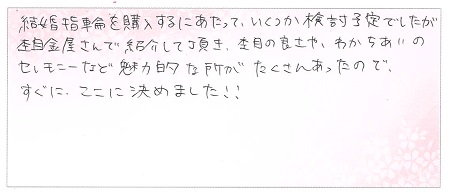 結婚指輪を購入するにあたって、いくつか検討予定でしたが
杢目金屋さんで紹介して頂き、杢目の良さや、わかちあいの
セレモニーなど魅力的な所がたくさんあったので、
すぐに、ここに決めました!!